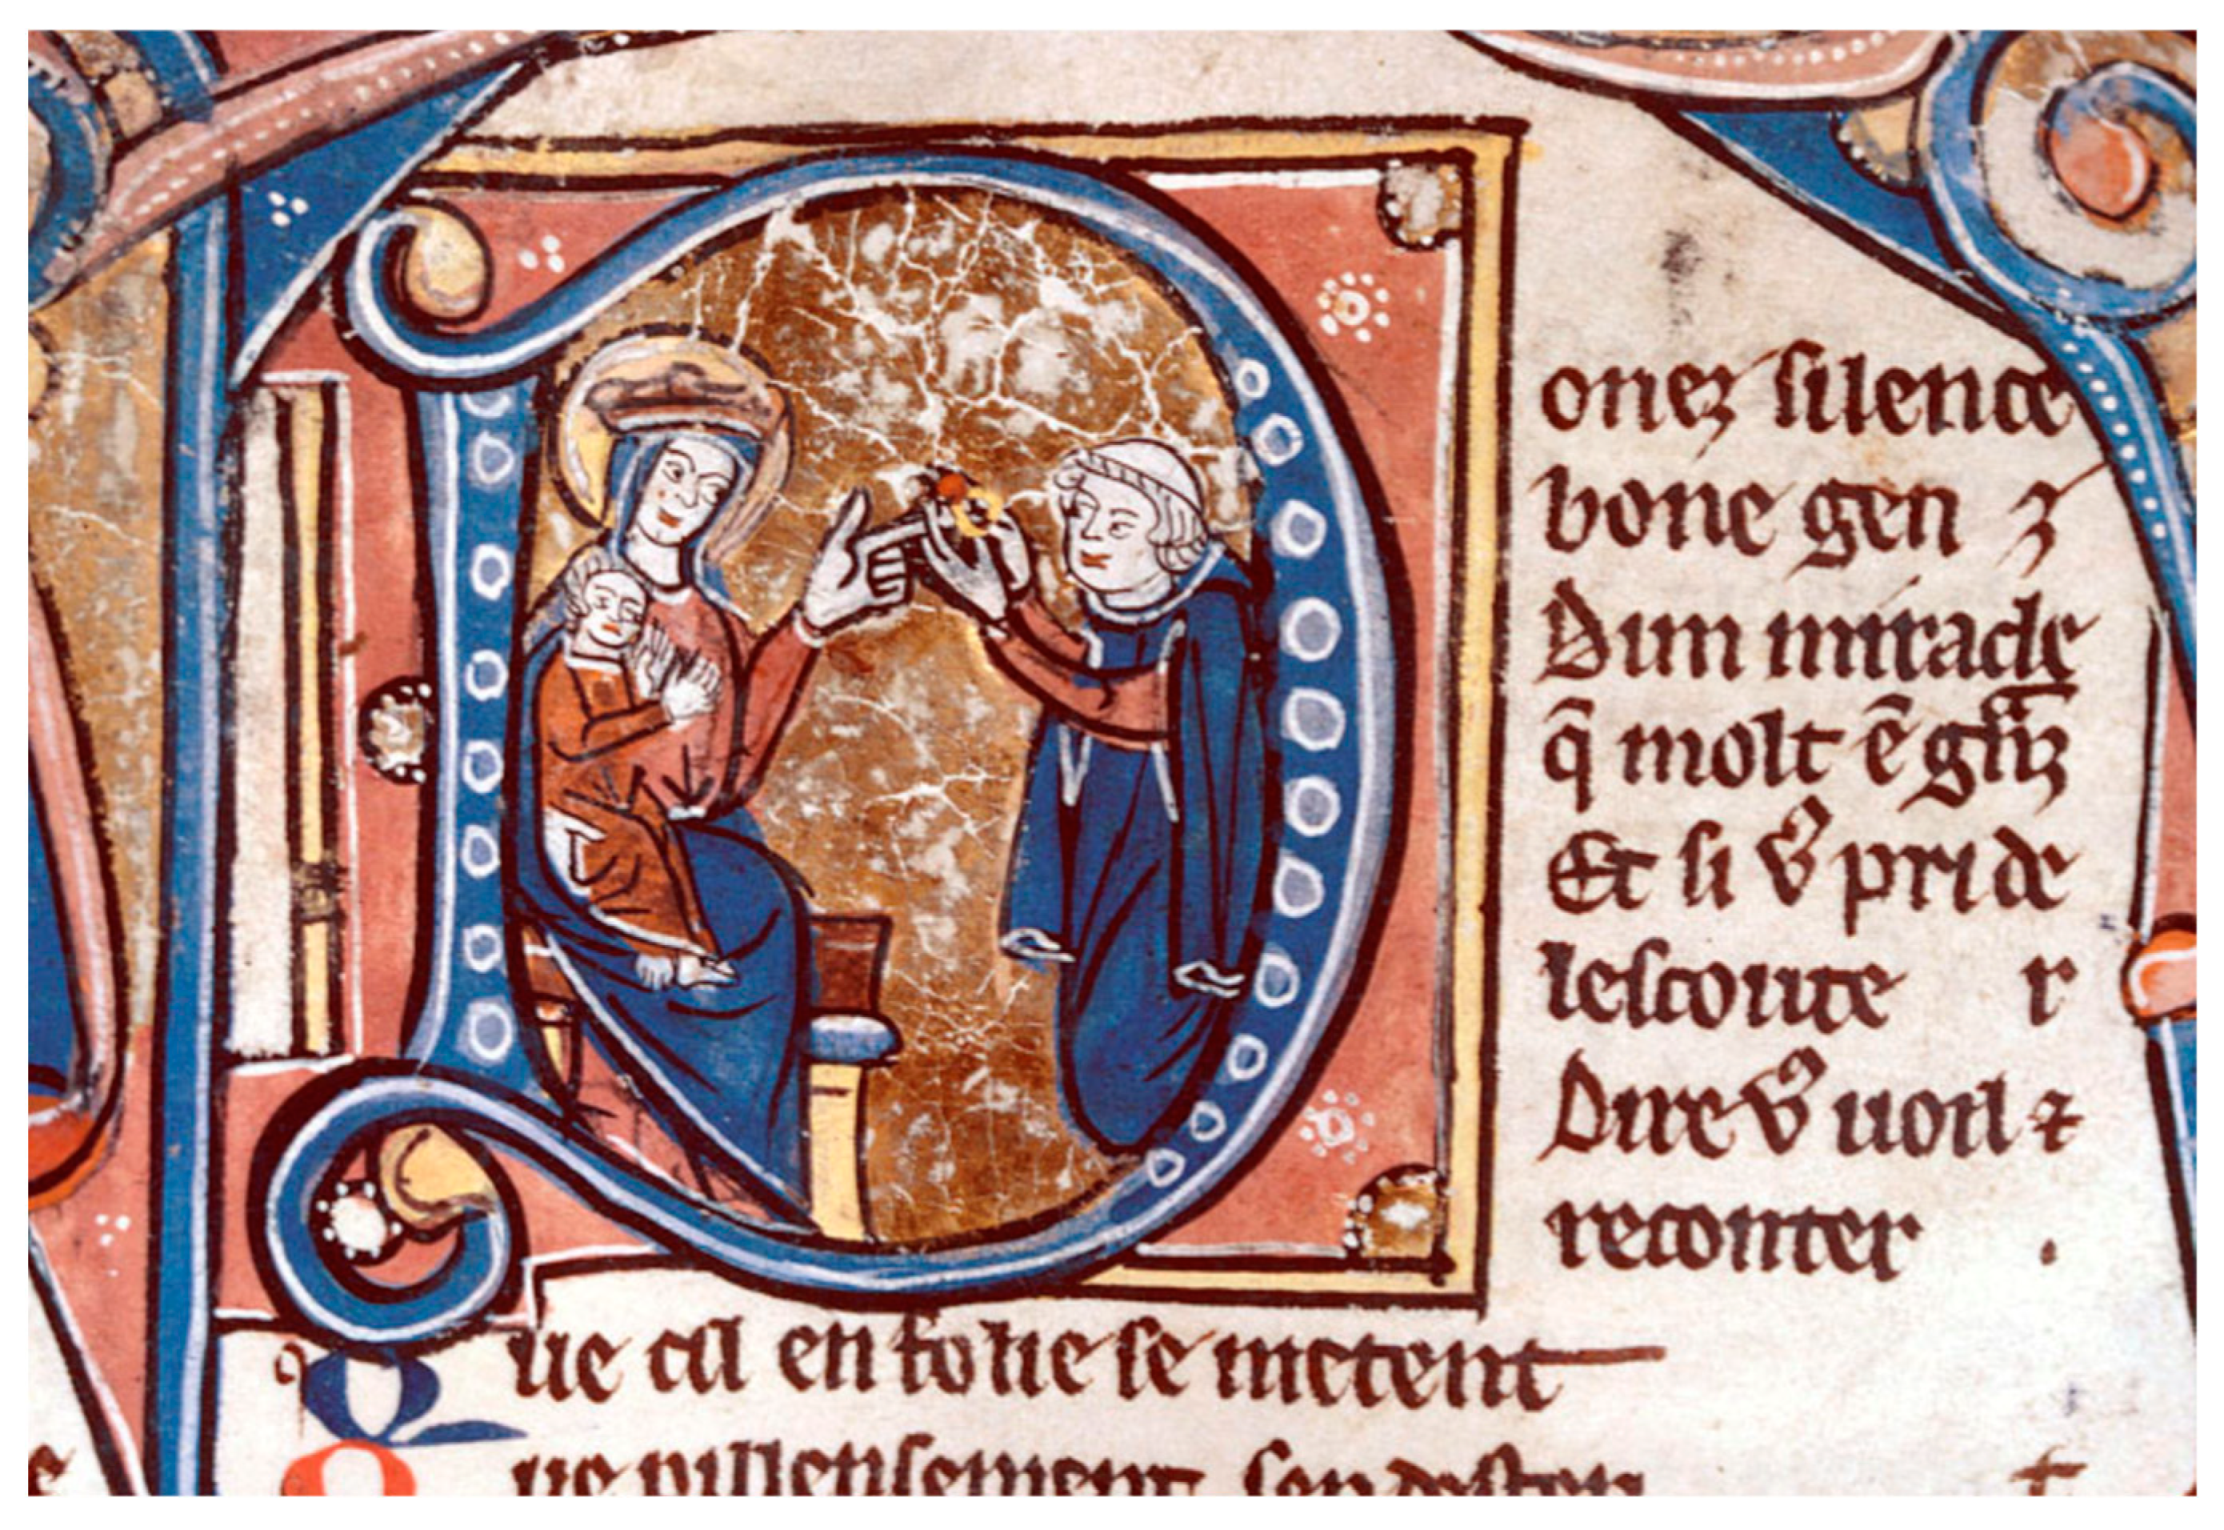 Donez silence
bone gen z
Dun miracle
q̃ molt ẽ gñz
Et si vͦ pri de
lescoute r
Dire vͦ uoil ⁊
reconter .
Que cil en folie se metent